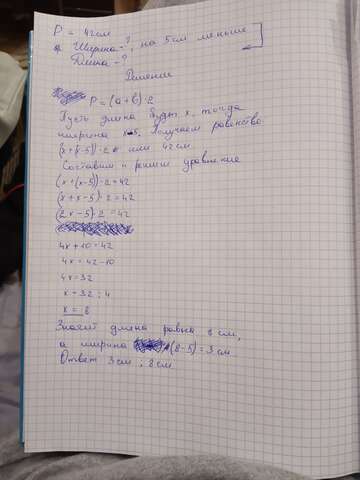 P = 42см
Ширина - ?, на 5см меньше
Длина - ?
Решение
P = (a+b)·2
Пусть длина будет x, тогда
ширина x-5. Получаем равенство
(x+(x-5))·2 или 42см
Составим и решим уравнение
(x+(x-5))·2=42
(x+x-5)·2=42
(2x-5)·2=42
4x+10=42
4x=42-10
4x=32
x=32:4
x=8
Значит длина равна 8см,
а ширина (8-5)=3см
Ответ 3см; 8см